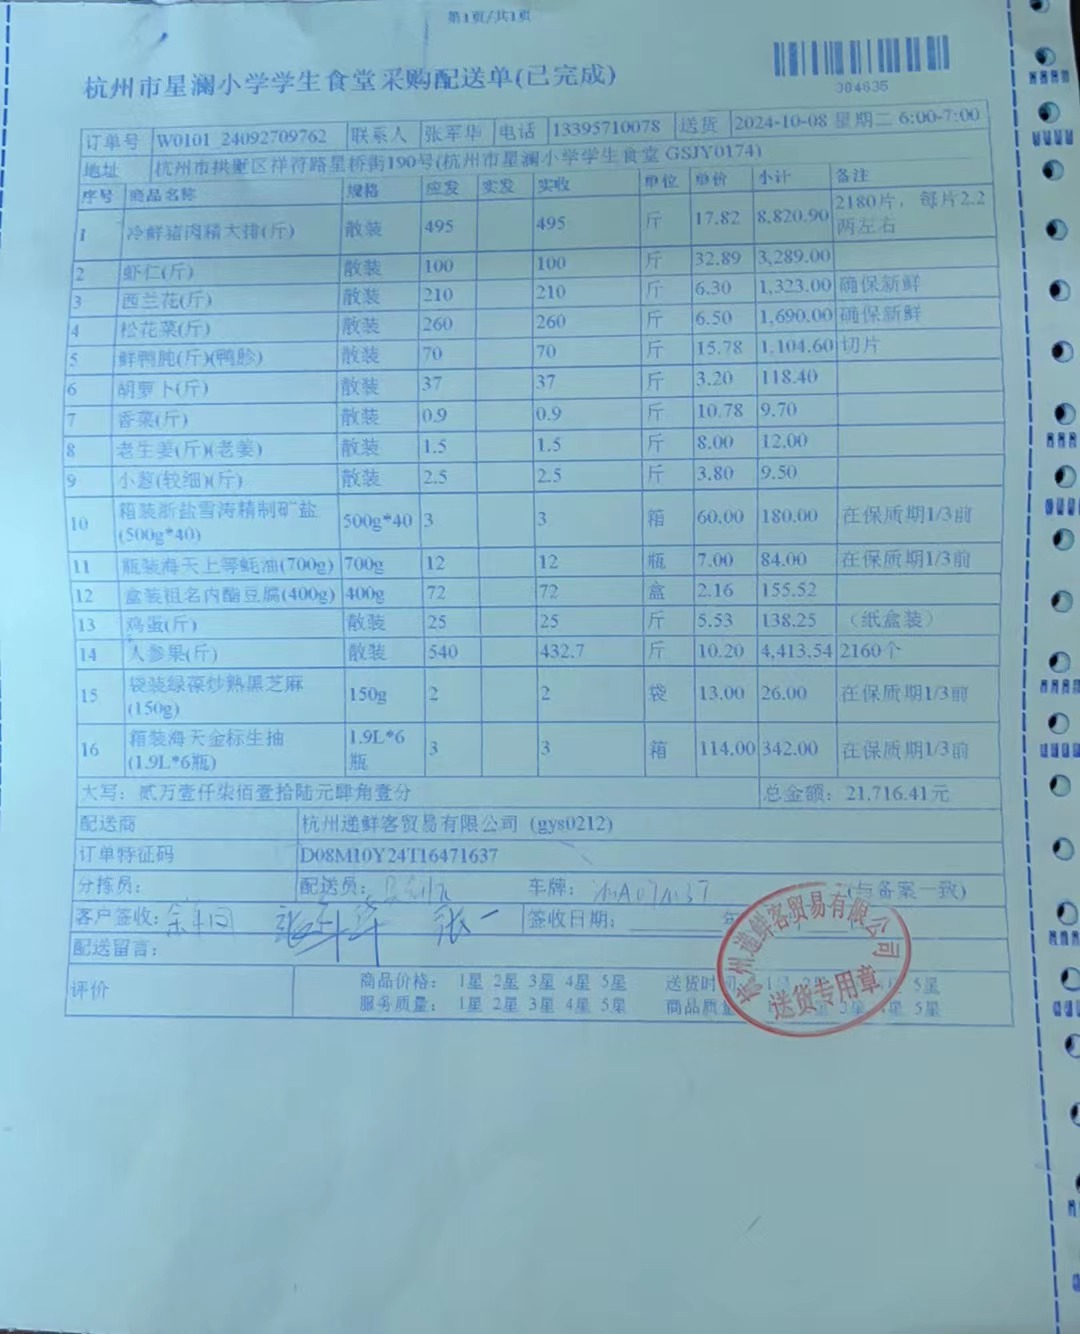 第1页/共1页
杭州市星澜小学学生食堂采购配送单(已完成)
384635
订单号 W0101_24092709762 联系人 张军华 电话 13395710078 送货 2024-10-08 星期二 6:00-7:00
地址 杭州市拱墅区祥符路星桥街190号(杭州市星澜小学学生食堂 GSJY0174)
序号 商品名称 规格 应发 实发 实收 单位 单价 小计 备注
1 冷鲜猪肉精大排(斤) 散装 495 495 斤 17.82 8,820.90 2180片，每片2.2两左右
2 虾仁(斤) 散装 100 100 斤 32.89 3,289.00
3 西兰花(斤) 散装 210 210 斤 6.30 1,323.00 确保新鲜
4 松花菜(斤) 散装 260 260 斤 6.50 1,690.00 确保新鲜
5 鲜鸭肫(斤)(鸭胗) 散装 70 70 斤 15.78 1,104.60 切片
6 胡萝卜(斤) 散装 37 37 斤 3.20 118.40
7 香菜(斤) 散装 0.9 0.9 斤 10.78 9.70
8 老生姜(斤)(老姜) 散装 1.5 1.5 斤 8.00 12.00
9 小葱(较细)(斤) 散装 2.5 2.5 斤 3.80 9.50
10 箱装浙盐雪涛精制矿盐(500g*40) 500g*40 3 3 箱 60.00 180.00 在保质期1/3前
11 瓶装海天上等蚝油(700g) 700g 12 12 瓶 7.00 84.00 在保质期1/3前
12 盒装祖名内酯豆腐(400g) 400g 72 72 盒 2.16 155.52
13 鸡蛋(斤) 散装 25 25 斤 5.53 138.25 （纸盒装）
14 人参果(斤) 散装 540 432.7 斤 10.20 4,413.54 2160个
15 袋装绿葆炒熟黑芝麻(150g) 150g 2 2 袋 13.00 26.00 在保质期1/3前
16 箱装海天金标生抽(1.9L*6瓶) 1.9L*6瓶 3 3 箱 114.00 342.00 在保质期1/3前
大写：贰万壹仟柒佰壹拾陆元肆角壹分 总金额：21,716.41元
配送商 杭州递鲜客贸易有限公司 (gys0212)
订单特征码 D08M10Y24T16471637
分拣员： 配送员： 车牌： (与备案一致)
客户签收： 张军华 张一 签收日期： 年
配送留言：
评价 商品价格： 1星 2星 3星 4星 5星 送货时间 1星 2星 5星
服务质量： 1星 2星 3星 4星 5星 商品质量 3星 4星 5星
杭州递鲜客贸易有限公司
送货专用章